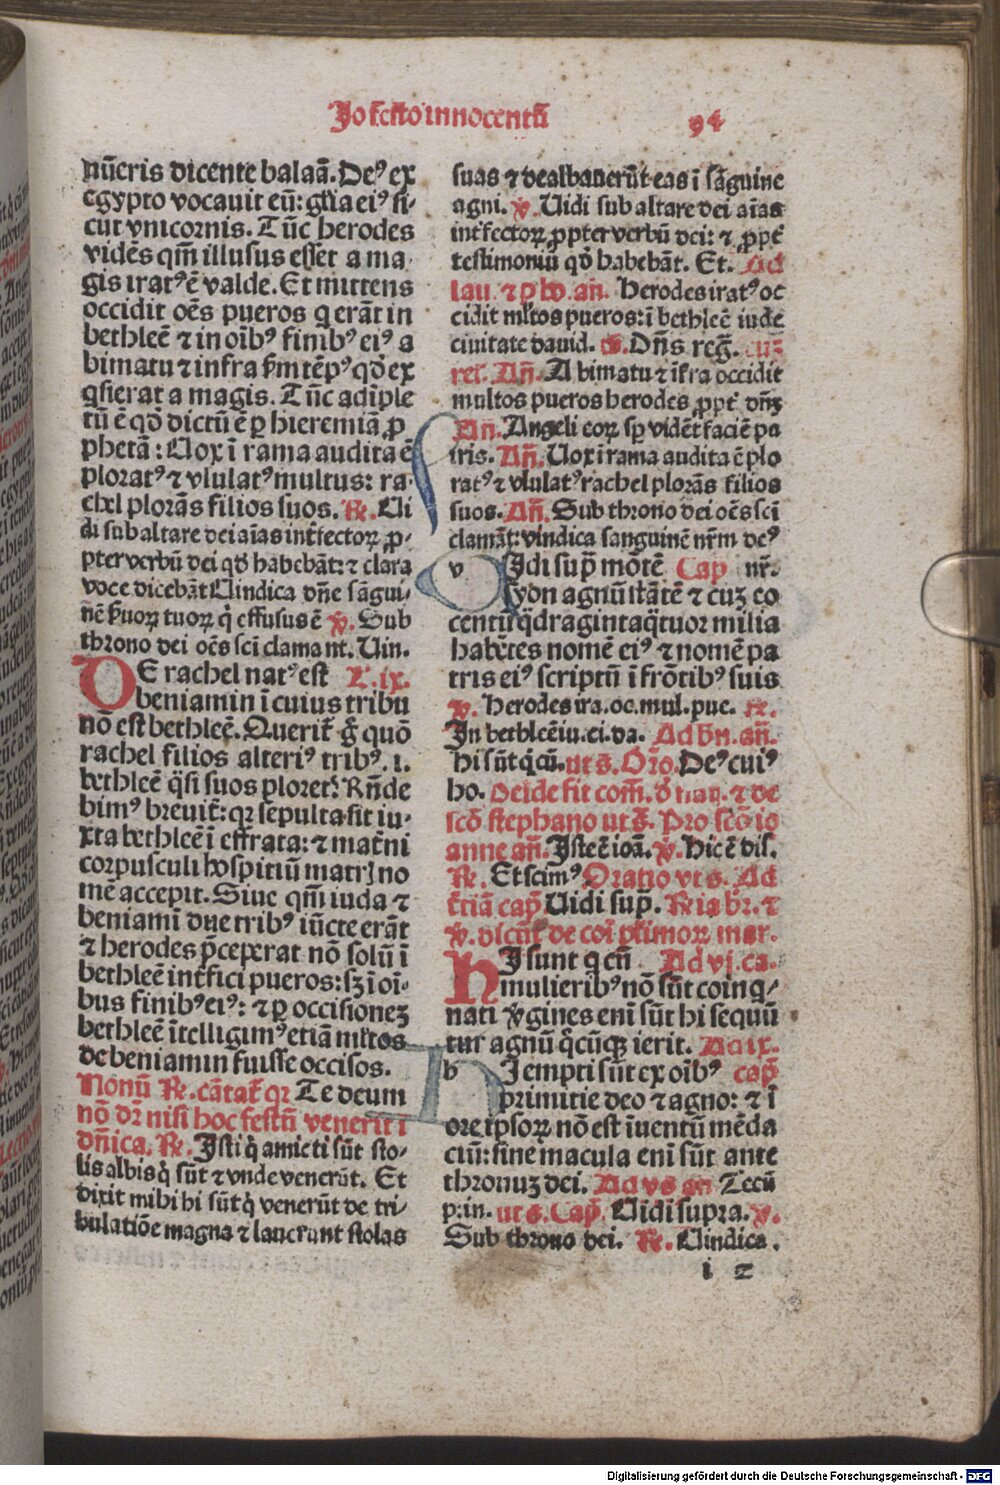 Jo festo innocentū
94
nūeris dicente balaā. Deꝰ ex
egypto vocauit eū: gl̄ia eiꝰ si-
cut vnicornis. Tūc herodes
vidēs qm̄ illusus esset a ma-
gis iratꝰ ē valde. Et mittens
occidit oēs pueros q erāt in
bethleē ⁊ in oībꝰ finibꝰ eiꝰ a
bimatu ⁊ infra ẜm tēpꝰ qd̓ ex
q̄sierat a magis. Tūc adīple
tū ē qd̓ dictū ē ꝑ hieremiā ꝓ
phetā: Uox ī rama audita ē
ploratꝰ ⁊ vlulatꝰ multus: ra-
chel plorās filios suos. ℟. Ui
di sub altare dei aīas int̄fectoꝝ ꝓ-
pter verbū dei qd̓ habebāt: ⁊ clara
voce dicebāt Uindica dn̄e sāgui-
nē ẜuoꝝ tuoꝝ q̇ effusus ē ℣. Sub
throno dei oēs sc̄i clamant. Uin.
DE rachel natꝰ est L̓.ix.
beniamin ī cuius tribu
nō est bethleē. Querit̄ g̊ quō
rachel filios alteriꝰ tribꝰ .i.
bethleē q̄si suos ploret: Rn̄de
bimꝰ breuit̄: qꝛ sepulta sit iu-
xta bethleē ī effrata: ⁊ mat̄ni
corpusculi hospitiū matrꝭ no
mē accepit. Siue qm̄ iuda ⁊
beniamī due tribꝰ iūcte erāt
⁊ herodes p̄ceperat nō solū ī
bethleē int̄fici pueros: sꝫ ī oī-
bus finibꝰ eiꝰ: ⁊ ꝑ occisioneꝫ
bethleē ītelligimꝰ etiā ml̓tos
de beniamin fuisse occisos.
Nonū ℟. cātat̄ qꝛ Te deum
nō dr̄ nisi hoc festū venerit ī
dn̄ica. ℟. Isti q̇ amicti sūt sto-
lis albis q̇ sūt ⁊ vnde venerūt. Et
dixit mihi hi sūt q̇ venerūt de tri-
bulatiōe magna ⁊ lauerunt stolas
suas ⁊ dealbauerūt eas ī sāguine
agni. ℣. Uidi sub altare dei aīas
int̄fectoꝝ ꝓpter verbū dei: ⁊ ꝓpt̄
testimoniū qd̓ habebāt. Et. Ad
lau. ⁊ ꝑ ho. an̄. Herodes iratꝰ oc
cidit ml̓tos pueros: ī bethleē iude
ciuitate dauid. p̄s. Dn̄s reḡ. cuꝫ
rel̓. An̄. A bimatu ⁊ īfra occidit
multos pueros herodes ꝓpt̄ dn̄ꝫ
An̄. Angeli eoꝝ sꝑ vidēt faciē pa
tris. An̄. Uox ī rama audita ē plo
ratꝰ ⁊ vlulatꝰ rachel plorās filios
suos. An̄. Sub throno dei oēs sc̄i
clamāt: vindica sanguinē nr̄m deꝰ
v Idi sup̄ mōtē Cap̄ nr̄.
syon agnū stātē ⁊ cuꝫ eo
centū q̄dragintaq̄tuor milia
habētes nomē eiꝰ ⁊ nomē pa
tris eiꝰ scriptū ī frōtibꝰ suis
℣. Herodes ira. oc. mul. pue. ℟.
In bethleē iu. ci. da. Ad bn̄. an̄.
Hi sūt q̇ cū. ut s. Or̄o. Deꝰ cuiꝰ
ho. Deīde fit com̄. d̓ nati. ⁊ de
scō stephano ut s̄. Pro scō io
anne an̄. Iste ē ioā. ℣. Hic ē dis.
℟. Et scimꝰ Oratio vt s. Ad
t̄tiā cap̄ Uidi sup̄. ℟ia br̄. ⁊
℣. dicūt̄ de cōi pl̄imoꝝ mar.
HI sunt q cū Ad vj. ca.
mulieribꝰ nō sūt coinq̇-
nati v̓gines enī sūt hi sequū
tur agnū q̊cūqꝫ ierit. Ad ix.
h I empti sūt ex oībꝰ cap̄
primitie deo ⁊ agno: ⁊ ī
ore ipsoꝝ nō est īuentū mēda
ciū: sine macula enī sūt ante
thronuꝫ dei. Ad vs̄ an̄ Tecū
prin. ut s. Cap̄. Uidi supra. ℣.
Sub throno dei. ℟. Uindica.
i 2
Digitalisierung gefördert durch die Deutsche Forschungsgemeinschaft - DFG